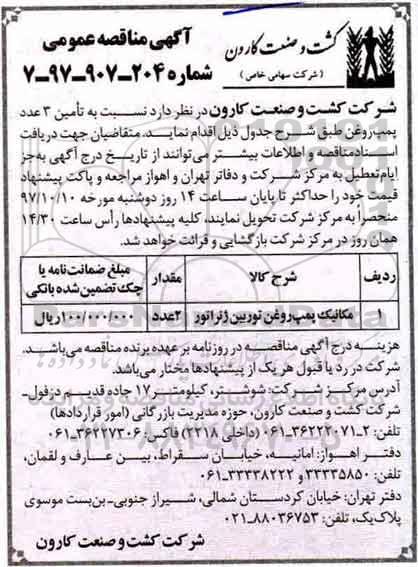 کشت و صنعت کارون
( شرکت سهامی خاص )
آگهی مناقصه عمومی
شماره ۲۰۴-۹۰۷-۹۷-۷
شرکت کشت و صنعت کارون در نظر دارد نسبت به تأمین ۳ عدد
پمپ روغن طبق شرح جدول ذیل اقدام نماید. متقاضیان جهت دریافت
اسناد مناقصه و اطلاعات بیشتر می‌توانند از تاریخ درج آگهی به‌جز
ایام تعطیل به مرکز شرکت و دفاتر تهران و اهواز مراجعه و پاکت پیشنهاد
قیمت خود را حداکثر تا پایان ساعت ۱۴ روز دوشنبه مورخه ۹۷/۱۰/۱۰
منحصراً به مرکز شرکت تحویل نمایند، کلیه پیشنهادها رأس ساعت ۱۴/۳۰
همان روز در مرکز شرکت بازگشایی و قرائت خواهد شد.
ردیف شرح کالا مقدار مبلغ ضمانت‌نامه یا چک تضمین شده بانکی
۱ مکانیک پمپ روغن توربین ژنراتور ۲عدد ۱۰۰/۰۰۰/۰۰۰ریال
هزینه درج آگهی مناقصه در روزنامه بر عهده برنده مناقصه می‌باشد.
شرکت در رد یا قبول هر یک از پیشنهادها مختار می‌باشد.
آدرس مرکز شرکت: شوشتر، کیلومتر ۱۷ جاده قدیم دزفول-
شرکت کشت و صنعت کارون، حوزه مدیریت بازرگانی (امور قراردادها)
تلفن: ۲-۳۶۲۲۲۰۷۱-۰۶۱ (داخلی ۲۲۱۸) فاکس: ۳۶۲۱۷۳۰۶-۰۶۱
دفتر اهواز: امانیه، خیابان سقراط، بین عارف و لقمان،
تلفن: ۳۳۳۳۵۸۵۰ و ۳۳۳۳۸۲۲۲-۰۶۱
دفتر تهران: خیابان کردستان شمالی، شیراز جنوبی-بن‌بست موسوی
پلاک یک، تلفن: ۸۸۰۳۶۷۵۳-۰۲۱
شرکت کشت و صنعت کارون